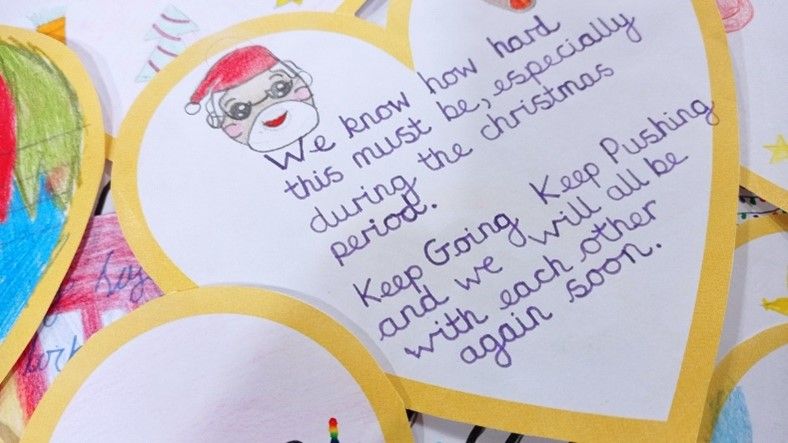 We know how hard
this must be, especially
during the christmas
period.
Keep Going Keep Pushing
and we will all be
with each other
again soon.